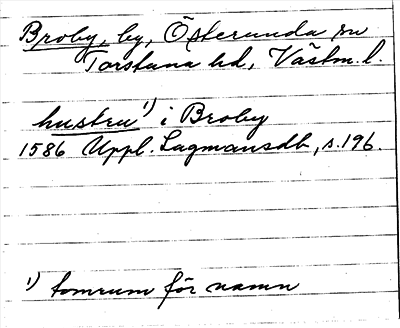 Broby, by, Österunda sn
Torstuna hd, Västm. l.
hustru¹⁾ i Broby
1586 Uppl. Lagmansdb, s. 196.
¹⁾ tomrum för namn